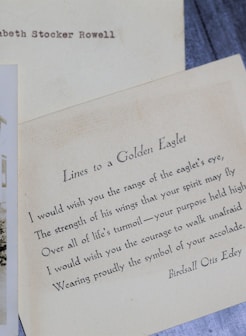 abeth Stocker Rowell
Lines to a Golden Eaglet
I would wish you the range of the eaglet's eye,
The strength of his wings that your spirit may fly
Over all of life's turmoil—your purpose held high
I would wish you the courage to walk unafraid
Wearing proudly the symbol of your accolade.
Birdsall Otis Edey